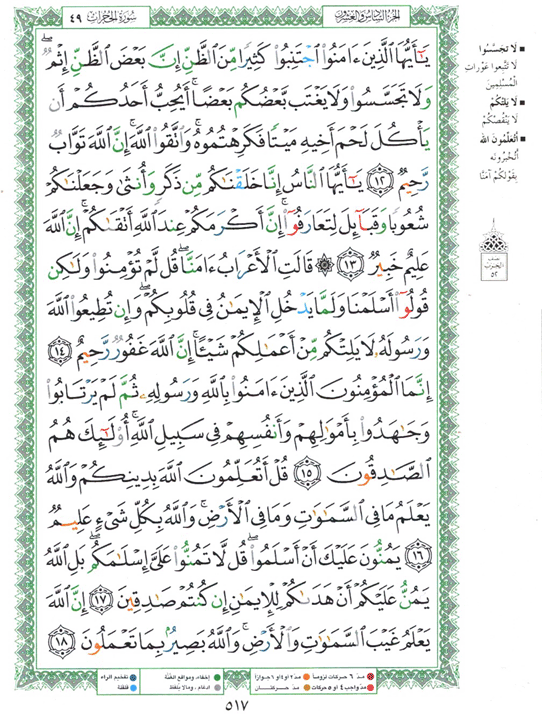 سُورَةُ الحُجُرَاتِ ٤٩
الجُزْءُ السَّادِسُ وَالعِشْرُونَ
يَٰٓأَيُّهَا ٱلَّذِينَ ءَامَنُوا۟ ٱجْتَنِبُوا۟ كَثِيرًا مِّنَ ٱلظَّنِّ إِنَّ بَعْضَ ٱلظَّنِّ إِثْمٌ ۖ
وَلَا تَجَسَّسُوا۟ وَلَا يَغْتَب بَّعْضُكُم بَعْضًا ۚ أَيُحِبُّ أَحَدُكُمْ أَن
يَأْكُلَ لَحْمَ أَخِيهِ مَيْتًا فَكَرِهْتُمُوهُ ۚ وَٱتَّقُوا۟ ٱللَّهَ ۚ إِنَّ ٱللَّهَ تَوَّابٌ
رَّحِيمٌ ١٢ يَٰٓأَيُّهَا ٱلنَّاسُ إِنَّا خَلَقْنَٰكُم مِّن ذَكَرٍ وَأُنثَىٰ وَجَعَلْنَٰكُمْ
شُعُوبًا وَقَبَآئِلَ لِتَعَارَفُوٓا۟ ۚ إِنَّ أَكْرَمَكُمْ عِندَ ٱللَّهِ أَتْقَىٰكُمْ ۚ إِنَّ ٱللَّهَ
عَلِيمٌ خَبِيرٌ ١٣ ۞ قَالَتِ ٱلْأَعْرَابُ ءَامَنَّا ۖ قُل لَّمْ تُؤْمِنُوا۟ وَلَٰكِن
قُولُوٓا۟ أَسْلَمْنَا وَلَمَّا يَدْخُلِ ٱلْإِيمَٰنُ فِى قُلُوبِكُمْ ۖ وَإِن تُطِيعُوا۟ ٱللَّهَ
وَرَسُولَهُۥ لَا يَلِتْكُم مِّنْ أَعْمَٰلِكُمْ شَيْـًٔا ۚ إِنَّ ٱللَّهَ غَفُورٌ رَّحِيمٌ ١٤
إِنَّمَا ٱلْمُؤْمِنُونَ ٱلَّذِينَ ءَامَنُوا۟ بِٱللَّهِ وَرَسُولِهِۦ ثُمَّ لَمْ يَرْتَابُوا۟
وَجَٰهَدُوا۟ بِأَمْوَٰلِهِمْ وَأَنفُسِهِمْ فِى سَبِيلِ ٱللَّهِ ۚ أُو۟لَٰٓئِكَ هُمُ
ٱلصَّٰدِقُونَ ١٥ قُلْ أَتُعَلِّمُونَ ٱللَّهَ بِدِينِكُمْ وَٱللَّهُ
يَعْلَمُ مَا فِى ٱلسَّمَٰوَٰتِ وَمَا فِى ٱلْأَرْضِ ۚ وَٱللَّهُ بِكُلِّ شَىْءٍ عَلِيمٌ
١٦ يَمُنُّونَ عَلَيْكَ أَنْ أَسْلَمُوا۟ ۖ قُل لَّا تَمُنُّوا۟ عَلَىَّ إِسْلَٰمَكُم ۖ بَلِ ٱللَّهُ
يَمُنُّ عَلَيْكُمْ أَنْ هَدَىٰكُمْ لِلْإِيمَٰنِ إِن كُنتُمْ صَٰدِقِينَ ١٧ إِنَّ ٱللَّهَ
يَعْلَمُ غَيْبَ ٱلسَّمَٰوَٰتِ وَٱلْأَرْضِ ۚ وَٱللَّهُ بَصِيرٌۢ بِمَا تَعْمَلُونَ ١٨
■ لَا تَجَسَّسُوا
لا تَتَّبِعوا عَوْراتِ
المُسْلِمِينَ
■ لا يَلِتْكُمْ
لا يَنْقُصْكُمْ
■ أَتُعَلِّمُونَ الله
أَتُخْبِرُونَه
بِقَوْلِكُمْ آمَنَّا
الحزب
٥٢
مدّ ٦ حركات لزوماً
مدّ ٢ أو ٤ أو ٦ جوازاً
إخفاء، ومواقع الغُنَّة
تفخيم الراء
مدّ واجب ٤ أو ٥ حركات
مدّ حركتان
إدغام، وما لا يُلفظ
قلقلة
٥١٧